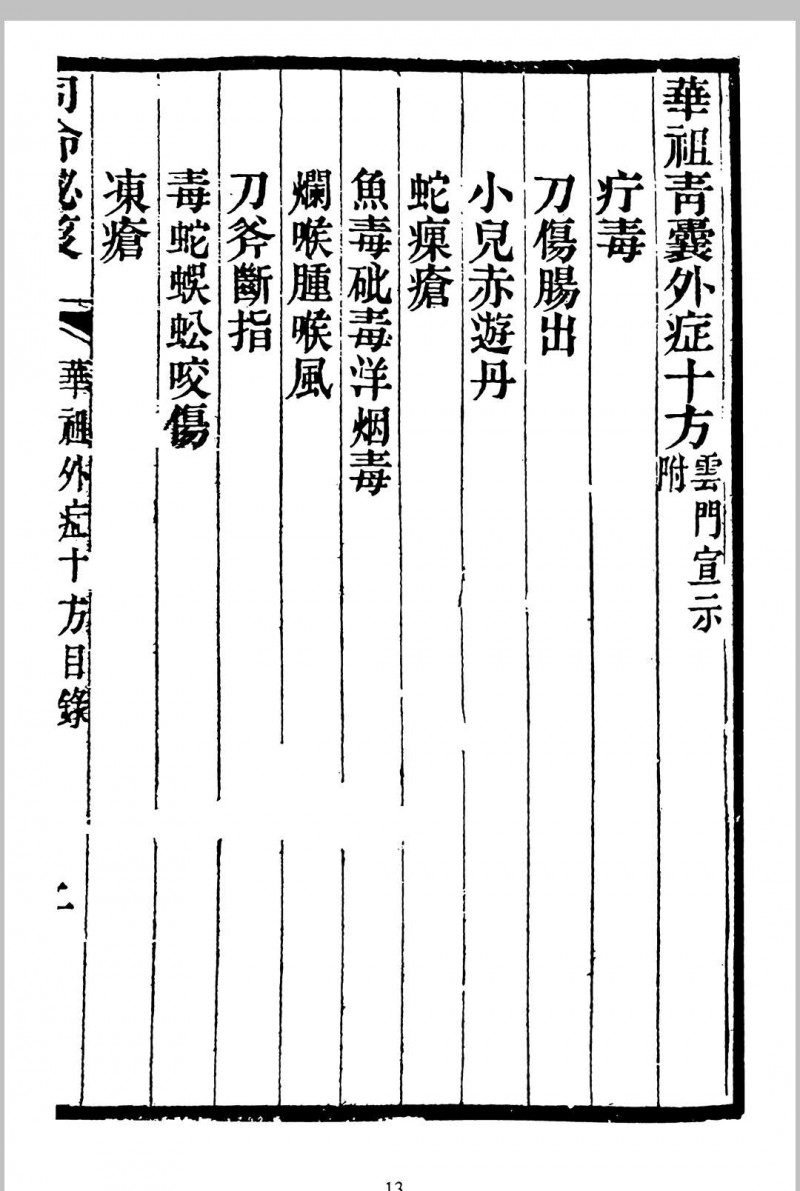 華祖靑囊外症十方 雲門宣示附
疔毒
刀傷腸出
小兒赤遊丹
蛇瘰瘡
魚毒砒毒洋烟毒
爛喉腫喉風
刀斧斷指
毒蛇蜈蚣咬傷
凍瘡
司命秘
華祖外症十方目錄
13